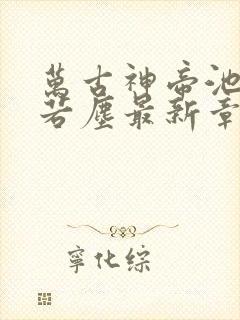 萬古神帝池
若塵最新章
寧化綜